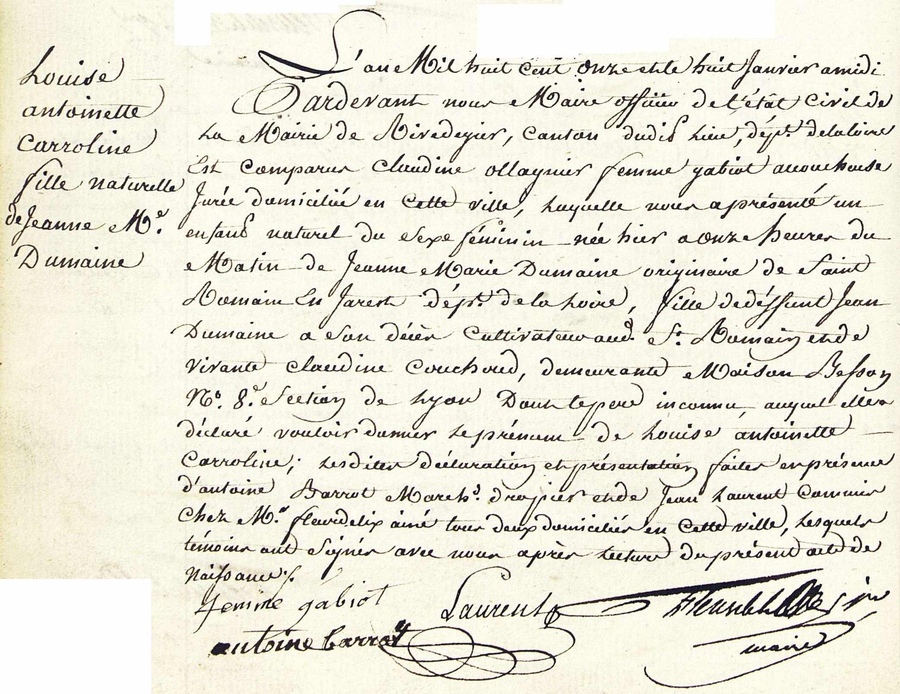 Louise
antoinette
Carroline
fille naturelle
de Jeanne M.e
Dumaine
L'an Mil huit cent onze et le huit Janvier a midi
Pardevant nous Maire officier de l'état Civil de
La Mairie de Rivedegier, canton dudit Lieu, dépt. delaloire
Est comparue Claudine ollagnier femme gabiot accoucheuse
Jurée domiciliée en cette ville, Laquelle nous a présenté un
enfant naturel du Sexe féminin née hier a onze heures du
Matin de Jeanne Marie Dumaine originaire de Saint
Romain En Jarest dépt. de la Loire, fille de déffunt Jean
Dumaine a Son décès Cultivateur aud. St. Romain et de
vivante Claudine Couchoud, demeurante Maison Besson
No. 8. Section de Lyon Dont le pere inconnu auquel elle a
déclaré vouloir donner Le prénom de Louise antoinette
Carroline; Lesdites déclaration et présentation faites en présence
d'antoine Barrot March. drapier et de Jean Laurent Commis
Chez Mr. fleurdelix ainé tous deux domiciliés en Cette ville, Lesquels
témoins ont Signés avec nous après Lecture du présent acte de
Naissance
femme gabiot
Laurent
antoine Barrot
maire